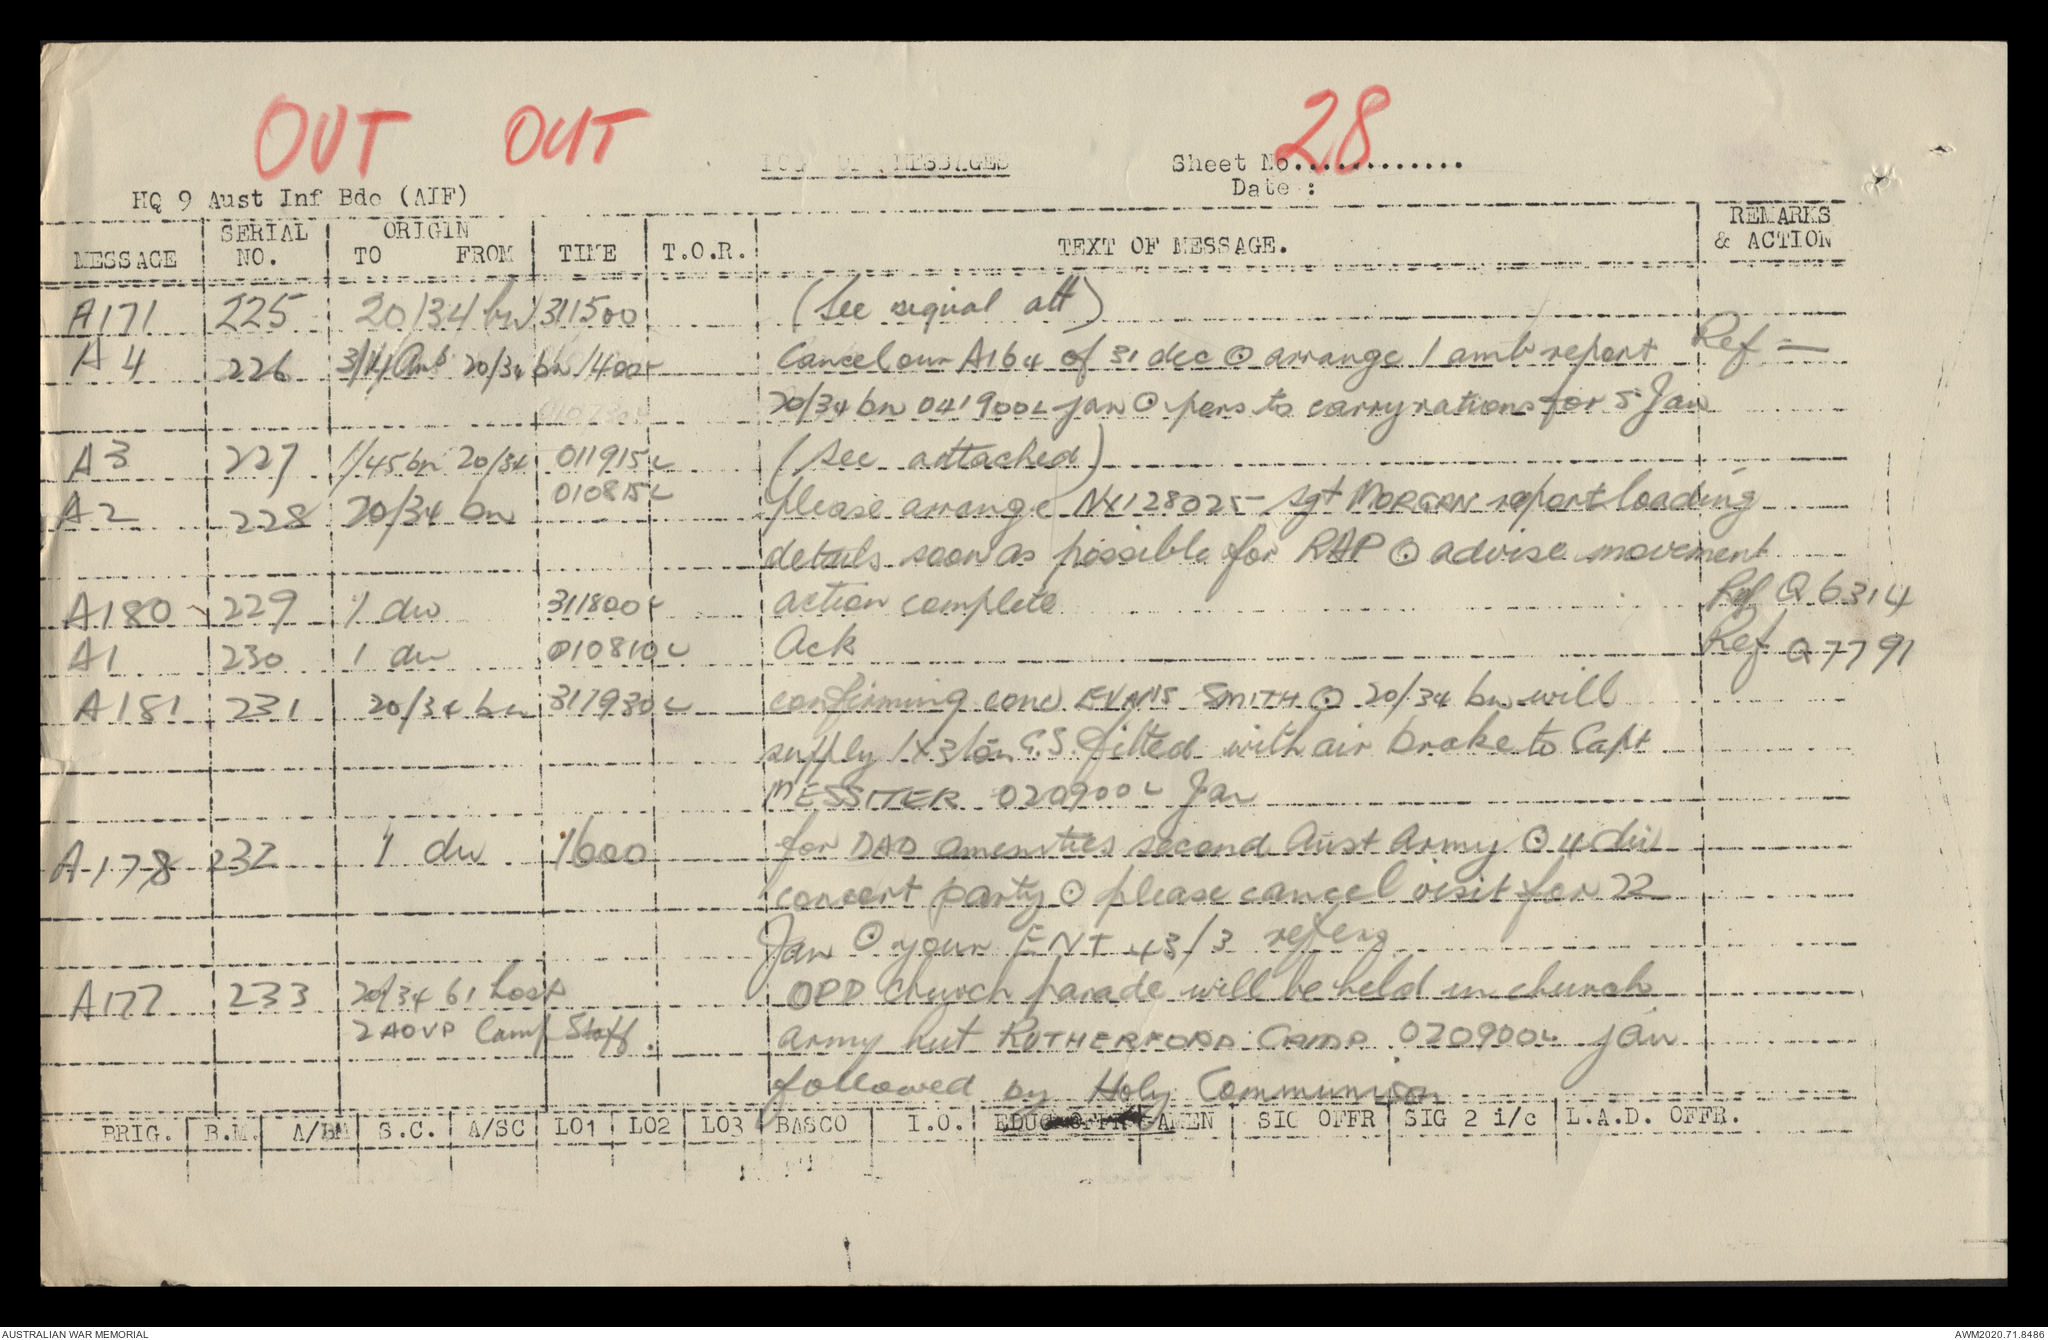 OUT OUT 28
LOG OF MESSAGES
Sheet No.............
Date :
HQ 9 Aust Inf Bde (AIF)
MESSAGE SERIAL NO. ORIGIN TO FROM TIME T.O.R. TEXT OF MESSAGE. REMARKS & ACTION
A171 225 20/34 bn 311500 (See signal att)
A4 226 3/14 Amb 20/34 bn 1400L Cancel our A164 of 31 dec ⊙ arrange 1 amb report Ref —
20/34 bn 041900L jan ⊙ pers to carry rations for 5 Jan
A3 227 1/45 bn 20/34 011915L (See attached)
A2 228 20/34 bn 010815L please arrange NX128025 Sgt MORGAN report loading
details soon as possible for RAP ⊙ advise movement
A180 229 1 div 311800L action complete Ref Q6314
A1 230 1 div 010810L Ack Ref Q7791
A181 231 20/34 bn 311930L confirming conv EVANS SMITH ⊙ 20/34 bn will
supply 1X3 ton G.S. fitted with air brake to Capt
MESSITER 020900L Jan
A178 232 1 div 1600 for DAD amenities second Aust Army ⊙ 4 div
concert party ⊙ please cancel visit for 22
Jan ⊙ your ENT 43/3 refers
A177 233 20/34 61 hosp OPD Church parade will be held in church
2 AOVP Camp Staff. army hut RUTHERFORD CAMP 020900L jan
followed by Holy Communion
BRIG. B.M. A/BM S.C. A/SC LO1 LO2 LO3 BASCO I.O. EDUC OFFR AMEN SIG OFFR SIG 2 i/c L.A.D. OFFR.
AUSTRALIAN WAR MEMORIAL AWM2020.71.8486